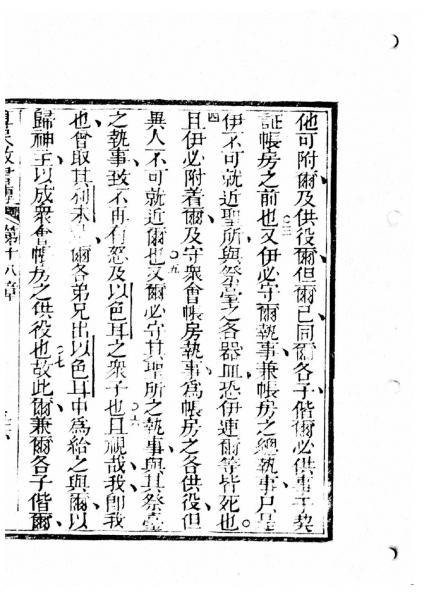 他可附爾及供役爾但爾已同爾各子偕爾必供事于契
証帳房之前也○三又伊必守爾執事兼帳房之總執事只是
伊不可就近聖所與祭臺之各器皿恐伊連爾等皆死也。
四且伊必附着爾及守衆會帳房執事為帳房之各供役但
異人不可就近爾也○五又爾必守其聖所之執事與其祭臺
之執事致不再有怒及以色耳之衆子也○六且視哉我卽我
也曾取其利未爾各弟兄出以色耳中為給之與爾以
歸神主以成衆會帳房之供役也○七故此爾兼爾各子偕爾
第十八章